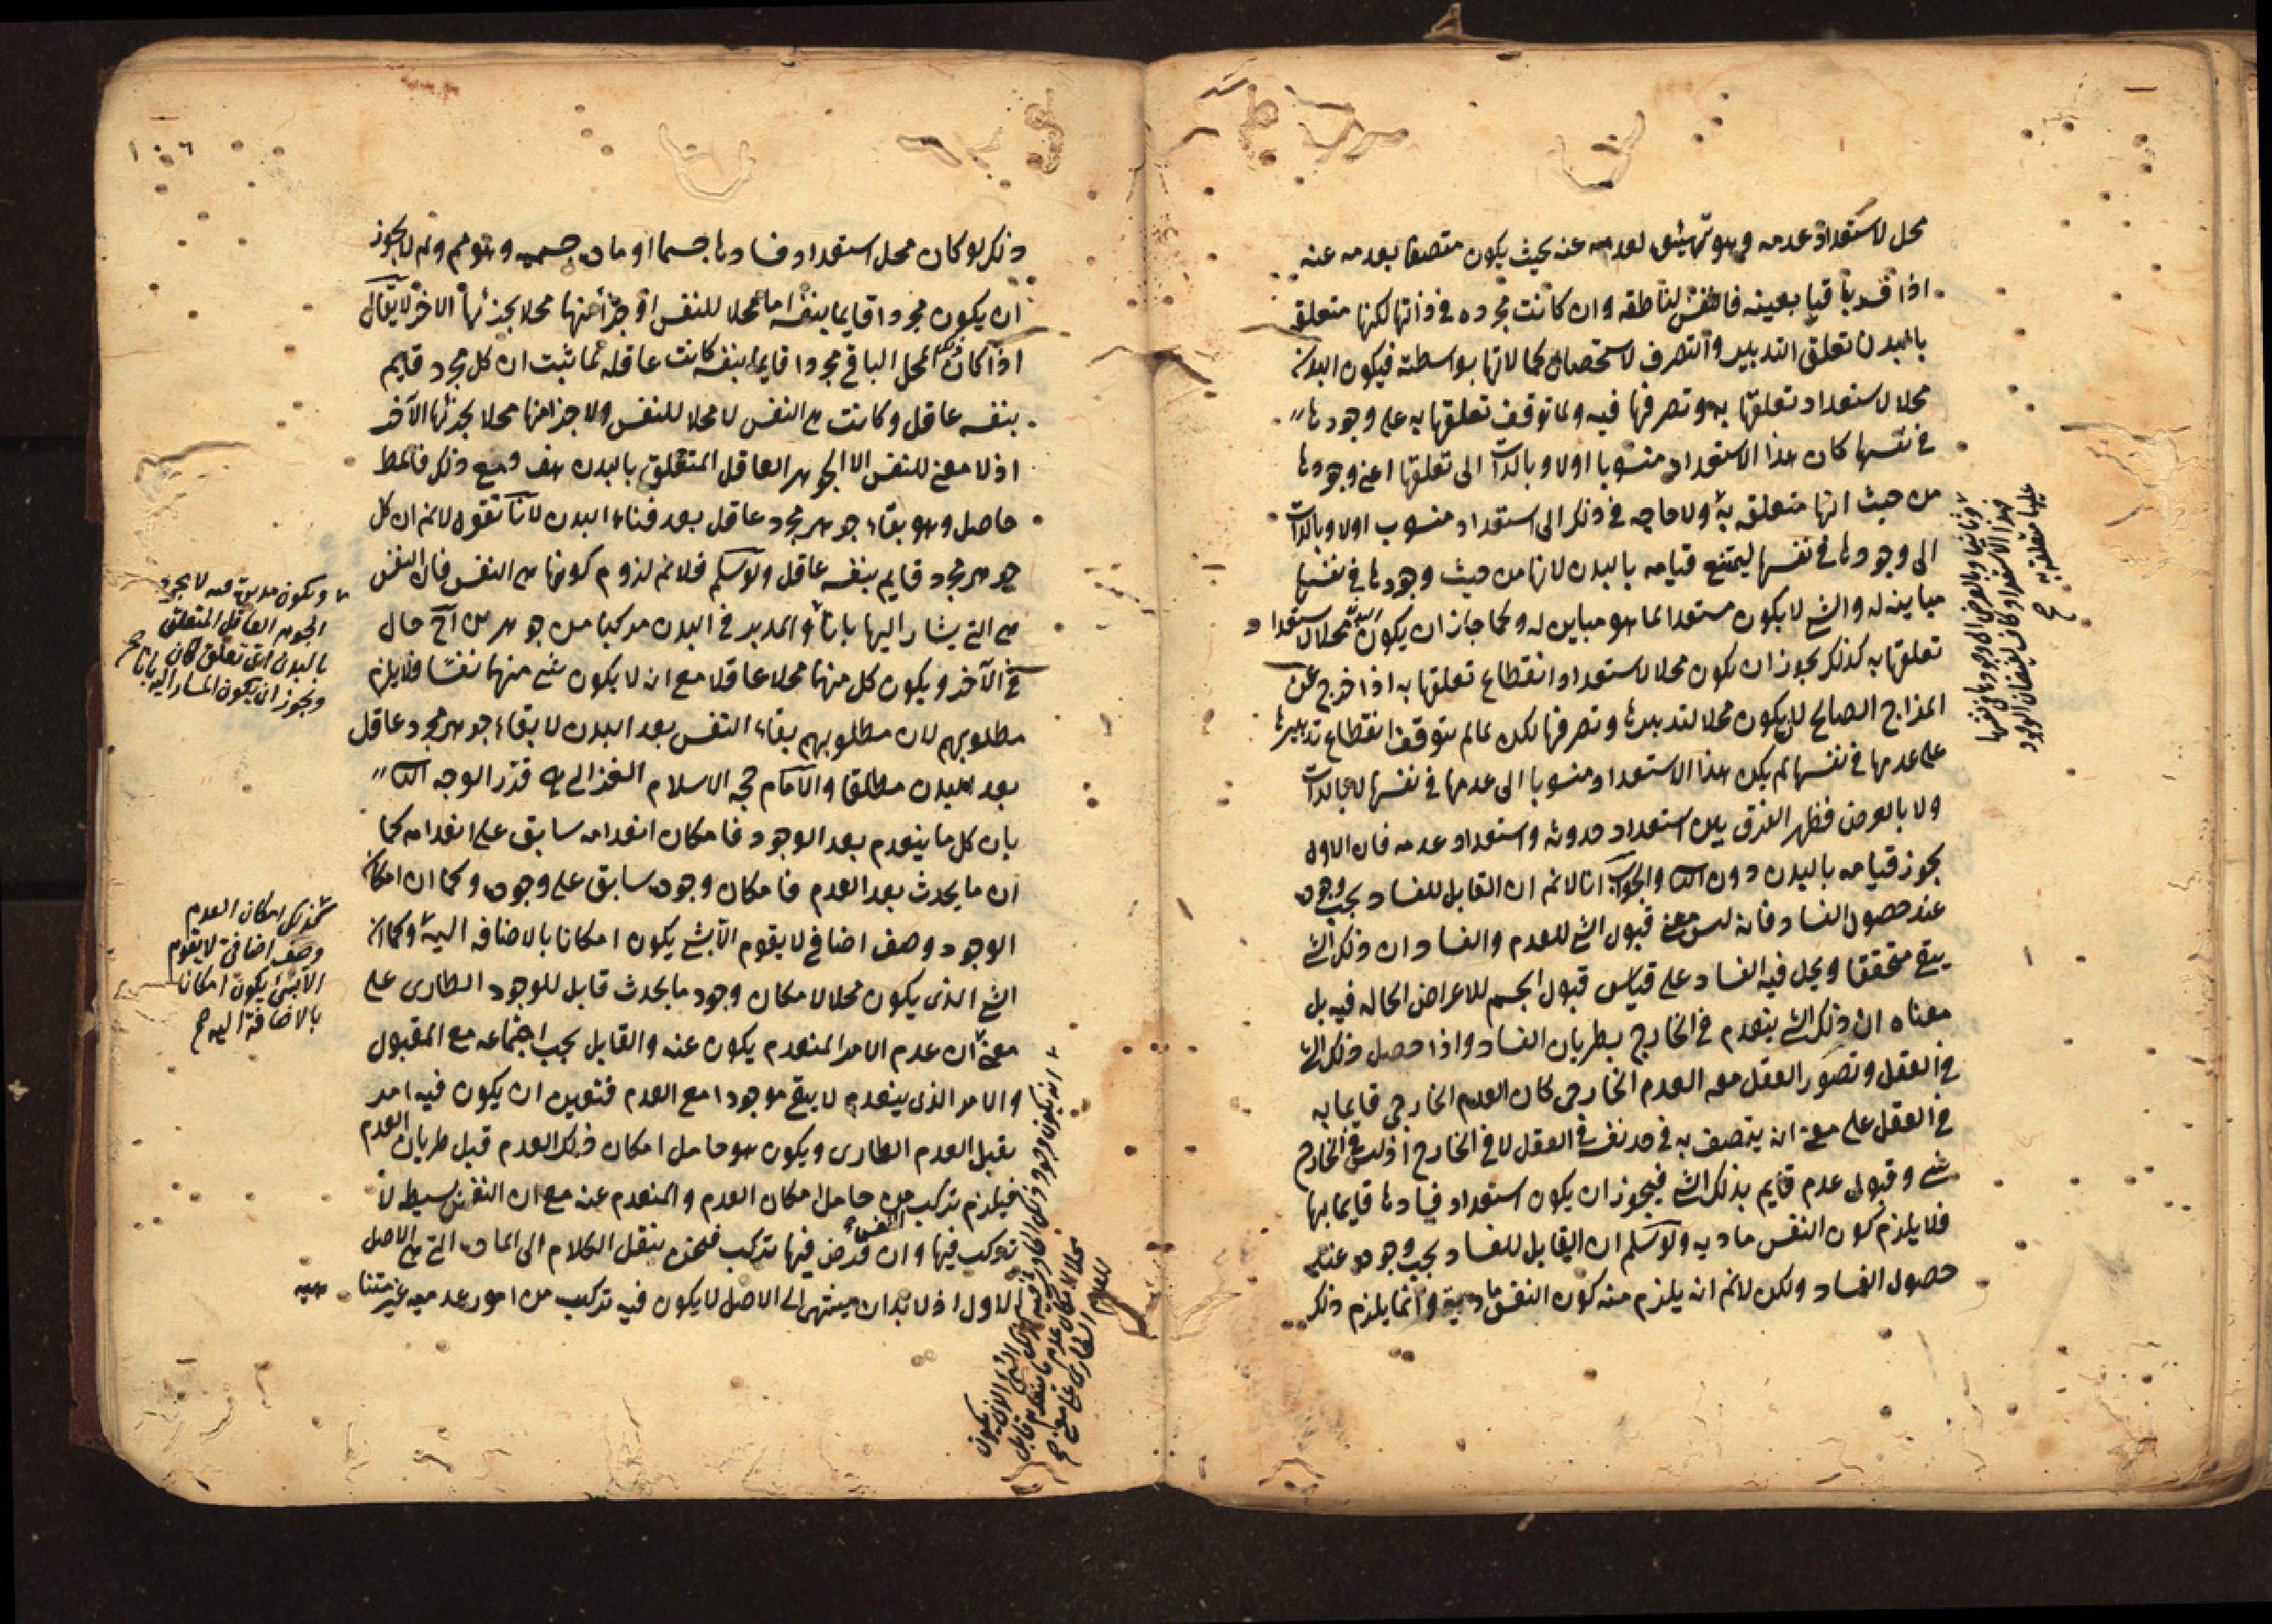 محل لاستعداد عدمه وهو تهيئه لعدمه عنه بحيث يكون متصفا بعدمه عنه
اذا فسد باقيا بعينه فالنفس الناطقه وان كانت مجرده في ذاتها لكنها متعلقه
بالبدن تعلق التدبير والتصرف لاستحصال كمالاتها بواسطته فيكون البدن
محلا لاستعداد تعلقها به وتصرفها فيه ولما توقف تعلقها به على وجودها
في نفسها كان هذا الاستعداد منسوبا اولا وبالذات الى تعلقها اعني وجودها
من حيث انها متعلقه به ولا حاجه في ذلك الى استعداد منسوب اولا وبالذات
الى وجودها في نفسها ليمتنع قيامه بالبدن لانها من حيث وجودها في نفسها
مباينه له والشئ لا يكون مستعدا لما هو مباين له وكما جاز ان يكون البدن محلا لاستعداد
تعلقها به كذلك يجوز ان يكون محلا لاستعداد انقطاع تعلقها به اذا خرج عن
المزاج الصالح لان يكون محلا لتدبيرها وتصرفها لكن لما لم يتوقف انقطاع تدبيرها
على عدمها في نفسها لم يكن هذا الاستعداد منسوبا الى عدمها في نفسها لا بالذات
ولا بالعرض فظهر الفرق بين استعداد حدوثه واستعداد عدمه فان الاول
يجوز قيامه بالبدن دون الثاني والجواب انا لانم ان القابل للفساد يجب وجوده
عند حصول الفساد فانه ليس معنى قبول الشئ للعدم والفساد ان ذلك الشئ
يبقى متحققا ويحل فيه الفساد على قياس قبول الجسم للاعراض الحاله فيه بل
معناه ان ذلك الشئ ينعدم في الخارج بطريان الفساد واذا حصل ذلك الشئ
في العقل وتصور العقل معه العدم الخارجي كان العدم الخارجي قايما به
في العقل على معنى انه يتصف به في حد نفسه في العقل لا في الخارج اذ ليس في الخارج
شئ وقبول عدم قايم بذلك الشئ فيجوز ان يكون استعداد فسادها قايما بها
فلا يلزم كون النفس ماديه ولو سلم ان القابل للفساد يجب وجوده عند
حصول الفساد ولكن لانم انه يلزم منه كون النفس ماديه وانما يلزم ذلك
وثانيا وبالعرض الى وجودها في نفسها
فهذا الاستعداد كاف لفيضان الوجود
عليها متعلقه به صح
١٠٦
ذلك لو كان محل استعداد فسادها جسما او ماده جسميه وهو مم ولم لا يجوز
ان يكون مجردا قايما بنفسه اما محلا للنفس او جزأ منها محلا لجزئها الاخر لا يقال
اذا كان المحل الباقي مجردا قايما بنفسه كانت عاقله لما ثبت ان كل مجرد قايم
بنفسه عاقل وكانت هي النفس لا محلا للنفس ولا جزا منها محلا لجزئها الآخر
اذ لا معنى للنفس الا الجوهر العاقل المتعلق بالبدن هف ومع ذلك فالمط
حاصل وهو بقاء جوهر مجرد عاقل بعد فناء البدن لانا نقول لانم ان كل
جوهر مجرد قايم بنفسه عاقل ولو سلم فلانم لزوم كونها هي النفس فان النفس
هي التي يشار اليها بانا والمدبر في البدن مركبا من جوهرين آخ حال
في الآخر ويكون كل منهما محلا عاقلا مع ان لا يكون شئ منهما نفسا فلا يلزم
مطلوبهم لان مطلوبهم بقاء النفس بعد البدن لا بقاء جوهر مجرد عاقل
بعد البدن مطلقا والامام حجه الاسلام الغزالي ره قرر الوجه الثاني
بان كل ما ينعدم بعد الوجود فامكان انعدامه سابق على انعدامه كما
ان ما يحدث بعد العدم فامكان وجوده سابق على وجوده وكما ان امكان
الوجود وصف اضافي لا يقوم الا بشئ يكون امكانا بالاضافه اليه وكما ان
الشئ الذى يكون محلا لامكان وجود ما يحدث قابل للوجود الطارى على
معنى ان عدم الامر المنعدم يكون عنه والقابل يجب اجتماعه مع المقبول
والامر الذى ينعدم لا يبقى موجودا مع العدم فتعين ان يكون فيه امر
يقبل العدم الطارى ويكون هو حامل امكان ذلك العدم قبل طريان العدم
فيلزم تركب من حامل امكان العدم والمنعدم عنه مع ان النفس بسيطه لا
تركب فيها وان فرض فيها تركب فنحن ننقل الكلام الى الماده التي هي الاصل
الاول اذ لا بد ان ينتهى الى الاصل لا يكون فيه تركب من امور عدميه غير متنا هيه
ويكون
الجوهر العاقل المتعلق
بالبدن اى تعلق كان
ويجوز ان يكون المشار اليه بانا صح
كذلك امكان العدم
وصف اضافي لا يقوم
الا بشئ يكون امكانا
بالاضافة اليه صح
انه يكون وجود ذلك الحادث فيه
كذلك الشئ الذى يكون
محلا لامكان عدم ما ينعدم قابل
للعدم الطارى على معنى صح